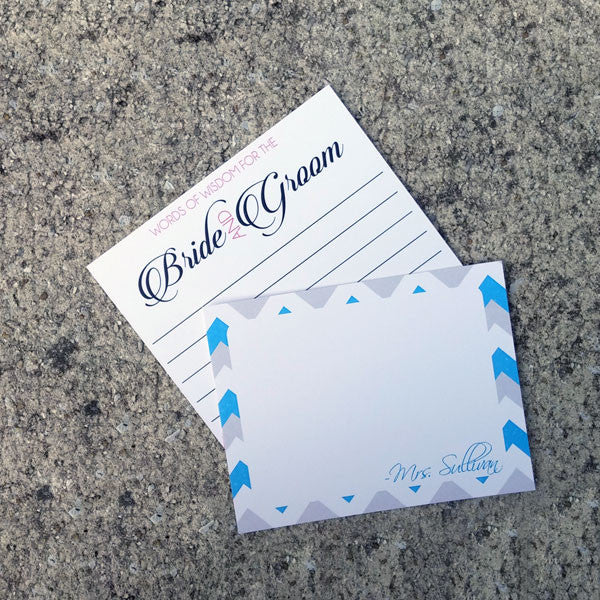 WORDS OF WISDOM FOR THE
Bride AND Groom
-Mrs. Sullivan